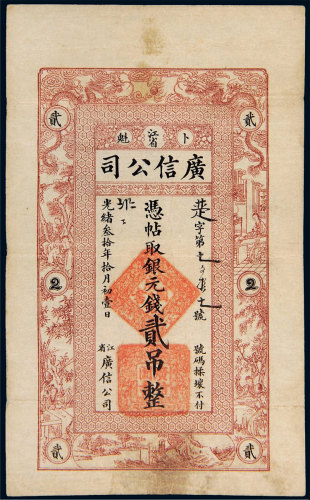 貳 貳
卜 江省 魁
廣信公司
字第 號
號碼揉壞不付
憑帖取銀元錢貳吊整
光緒叁拾年拾月初壹日
江省廣信公司
2 2
貳 貳